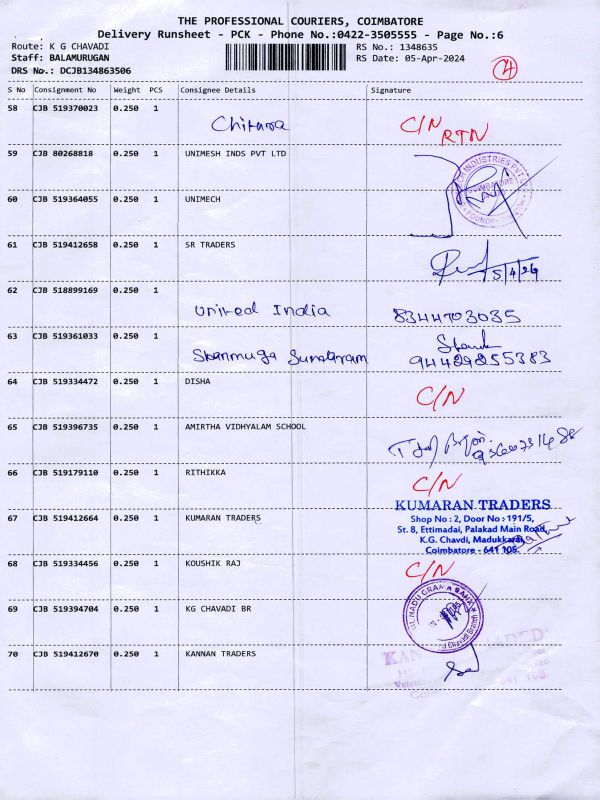 THE PROFESSIONAL COURIERS, COIMBATORE
Delivery Runsheet - PCK - Phone No.:0422-3505555 - Page No.:6
Route: K G CHAVADI RS No.: 1348635
Staff: BALAMURUGAN RS Date: 05-Apr-2024
DRS No.: DCJB134863506 4
S No Consignment No Weight PCS Consignee Details Signature
58 CJB 519370023 0.250 1 C/N RTN
59 CJB 80268818 0.250 1 UNIMESH INDS PVT LTD
INDUSTRIES PVT
COIMBATORE
60 CJB 519364055 0.250 1 UNIMECH
61 CJB 519412658 0.250 1 SR TRADERS 5/4/24
62 CJB 518899169 0.250 1 United India 8344703035
63 CJB 519361033 0.250 1 Shanmuga Sundaram
64 CJB 519334472 0.250 1 DISHA C/N
65 CJB 519396735 0.250 1 AMIRTHA VIDHYALAM SCHOOL
66 CJB 519179110 0.250 1 RITHIKKA C/N
67 CJB 519412664 0.250 1 KUMARAN TRADERS
KUMARAN TRADERS
Shop No : 2, Door No : 191/5,
St. 8, Ettimadai, Palakad Main Road,
K.G. Chavdi, Madukkarai,
Coimbatore - 641 105.
68 CJB 519334456 0.250 1 KOUSHIK RAJ C/N
69 CJB 519394704 0.250 1 KG CHAVADI BR
NADU GRAMA BANK
Chavadi Branch
70 CJB 519412670 0.250 1 KANNAN TRADERS